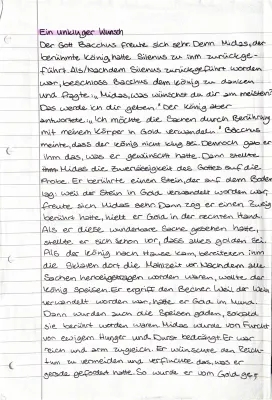 Ein unkluger Wunsch
Der Gott Bacchus freute sich sehr. Denn Midas, der
berühmte König hatte Silenus zu ihm zurückge-
führt. Als/Nachdem Silenus zurückgeführt worden
war, beschloss Bacchus dem König zu danken
und fragte: „Midas, was wünschst du dir am meisten?
Das werde ich dir geben." Der König aber
antwortete: „Ich möchte die Sachen durch Berührung
mit meinem Körper in Gold verwandeln." Bacchus
meinte, dass der König nicht klug sei. Dennoch gab er
ihm das, was er gewünscht hatte. Dann stellte
Midas die Zuverlässigkeit des Gottes auf die
Probe. Er berührte einen Stein, der auf dem Boden
lag. Weil der Stein in Gold verwandelt worden war,
freute sich Midas sehr. Dann zog er einen Zweig
berührt hatte, hielt er Gold in der rechten Hand.
Als er diese wunderbare Sache gesehen hatte,
stellte er sich schon vor, dass alles golden sei.
Als der König nach Hause kam, bereiteten ihm
die Sklaven dort die Mahlzeit vor. Nachdem alle
Sachen hereingetragen worden waren, wollte der
König speisen. Er ergriff den Becher. Weil der Wein
verwandelt worden war, hatte er Gold im Mund.
Dann wurden auch die Speisen golden, sobald
sie berührt worden waren. Midas wurde von Furcht
vor ewigem Hunger und Durst bedrängt. Er war
reich und arm zugleich. Er wünschte den Reich-
tum zu vermeiden und verfluchte das, was er
gerade gefordert hatte. So wurde er vom Gold ge-